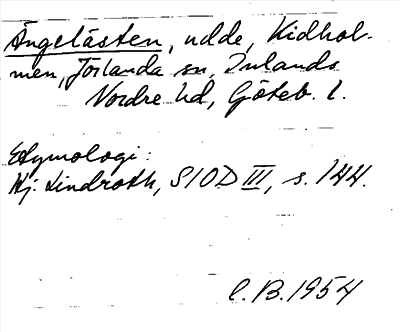 Ängelåsten, udde, Kidhol-
men, Jörlanda sn, Inlands
Nordre hd, Göteb. l.
Etymologi:
Hj. Lindroth, SIOD III, s. 144.
C. B. 1954